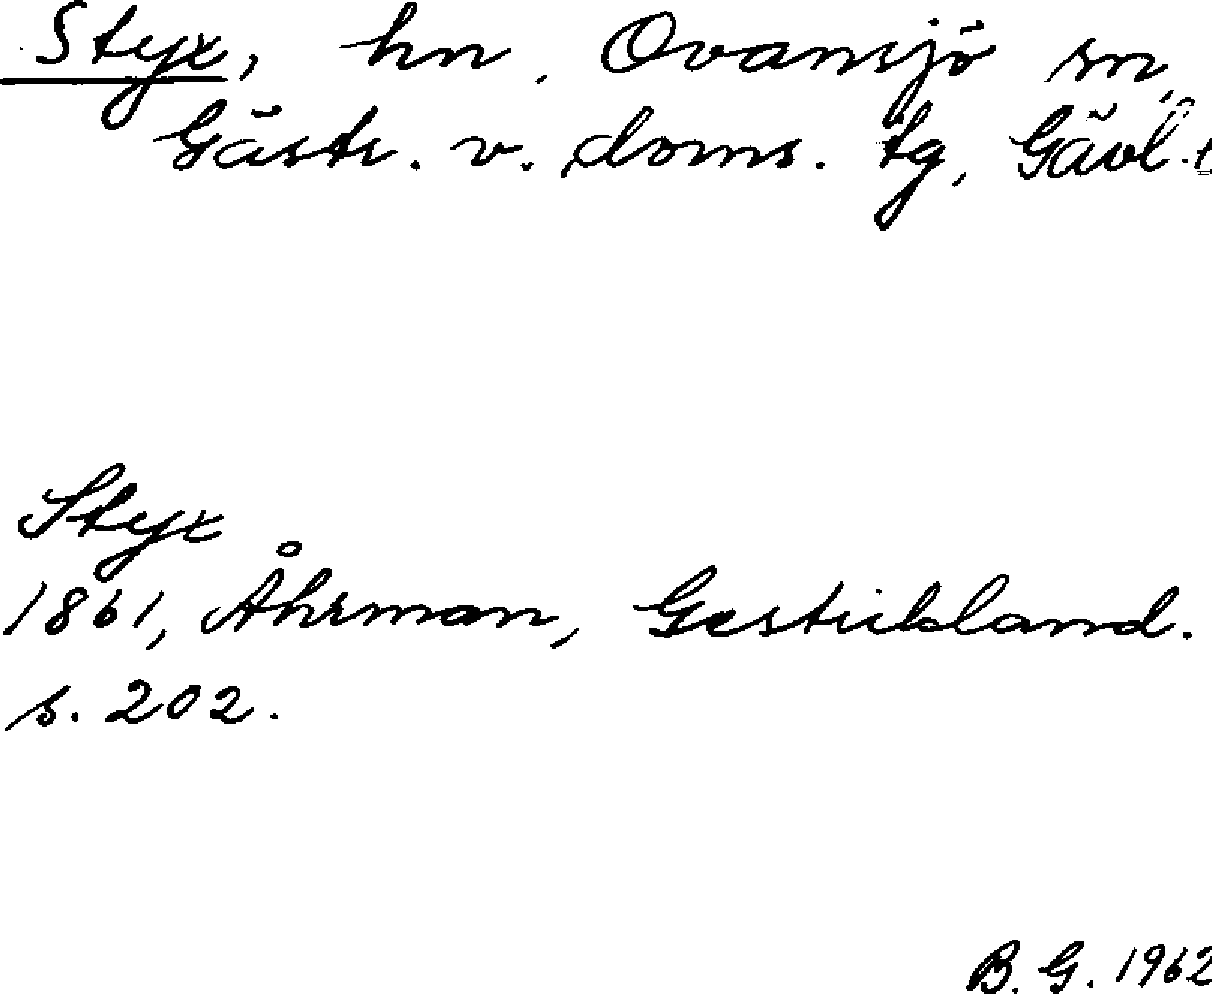 Styx, hn, Ovansjö sn,
Gästr. v. doms. tg, Gävl. l.
Styx
1861, Åhrman, Gestrikland.
s. 202.
B. G. 1962